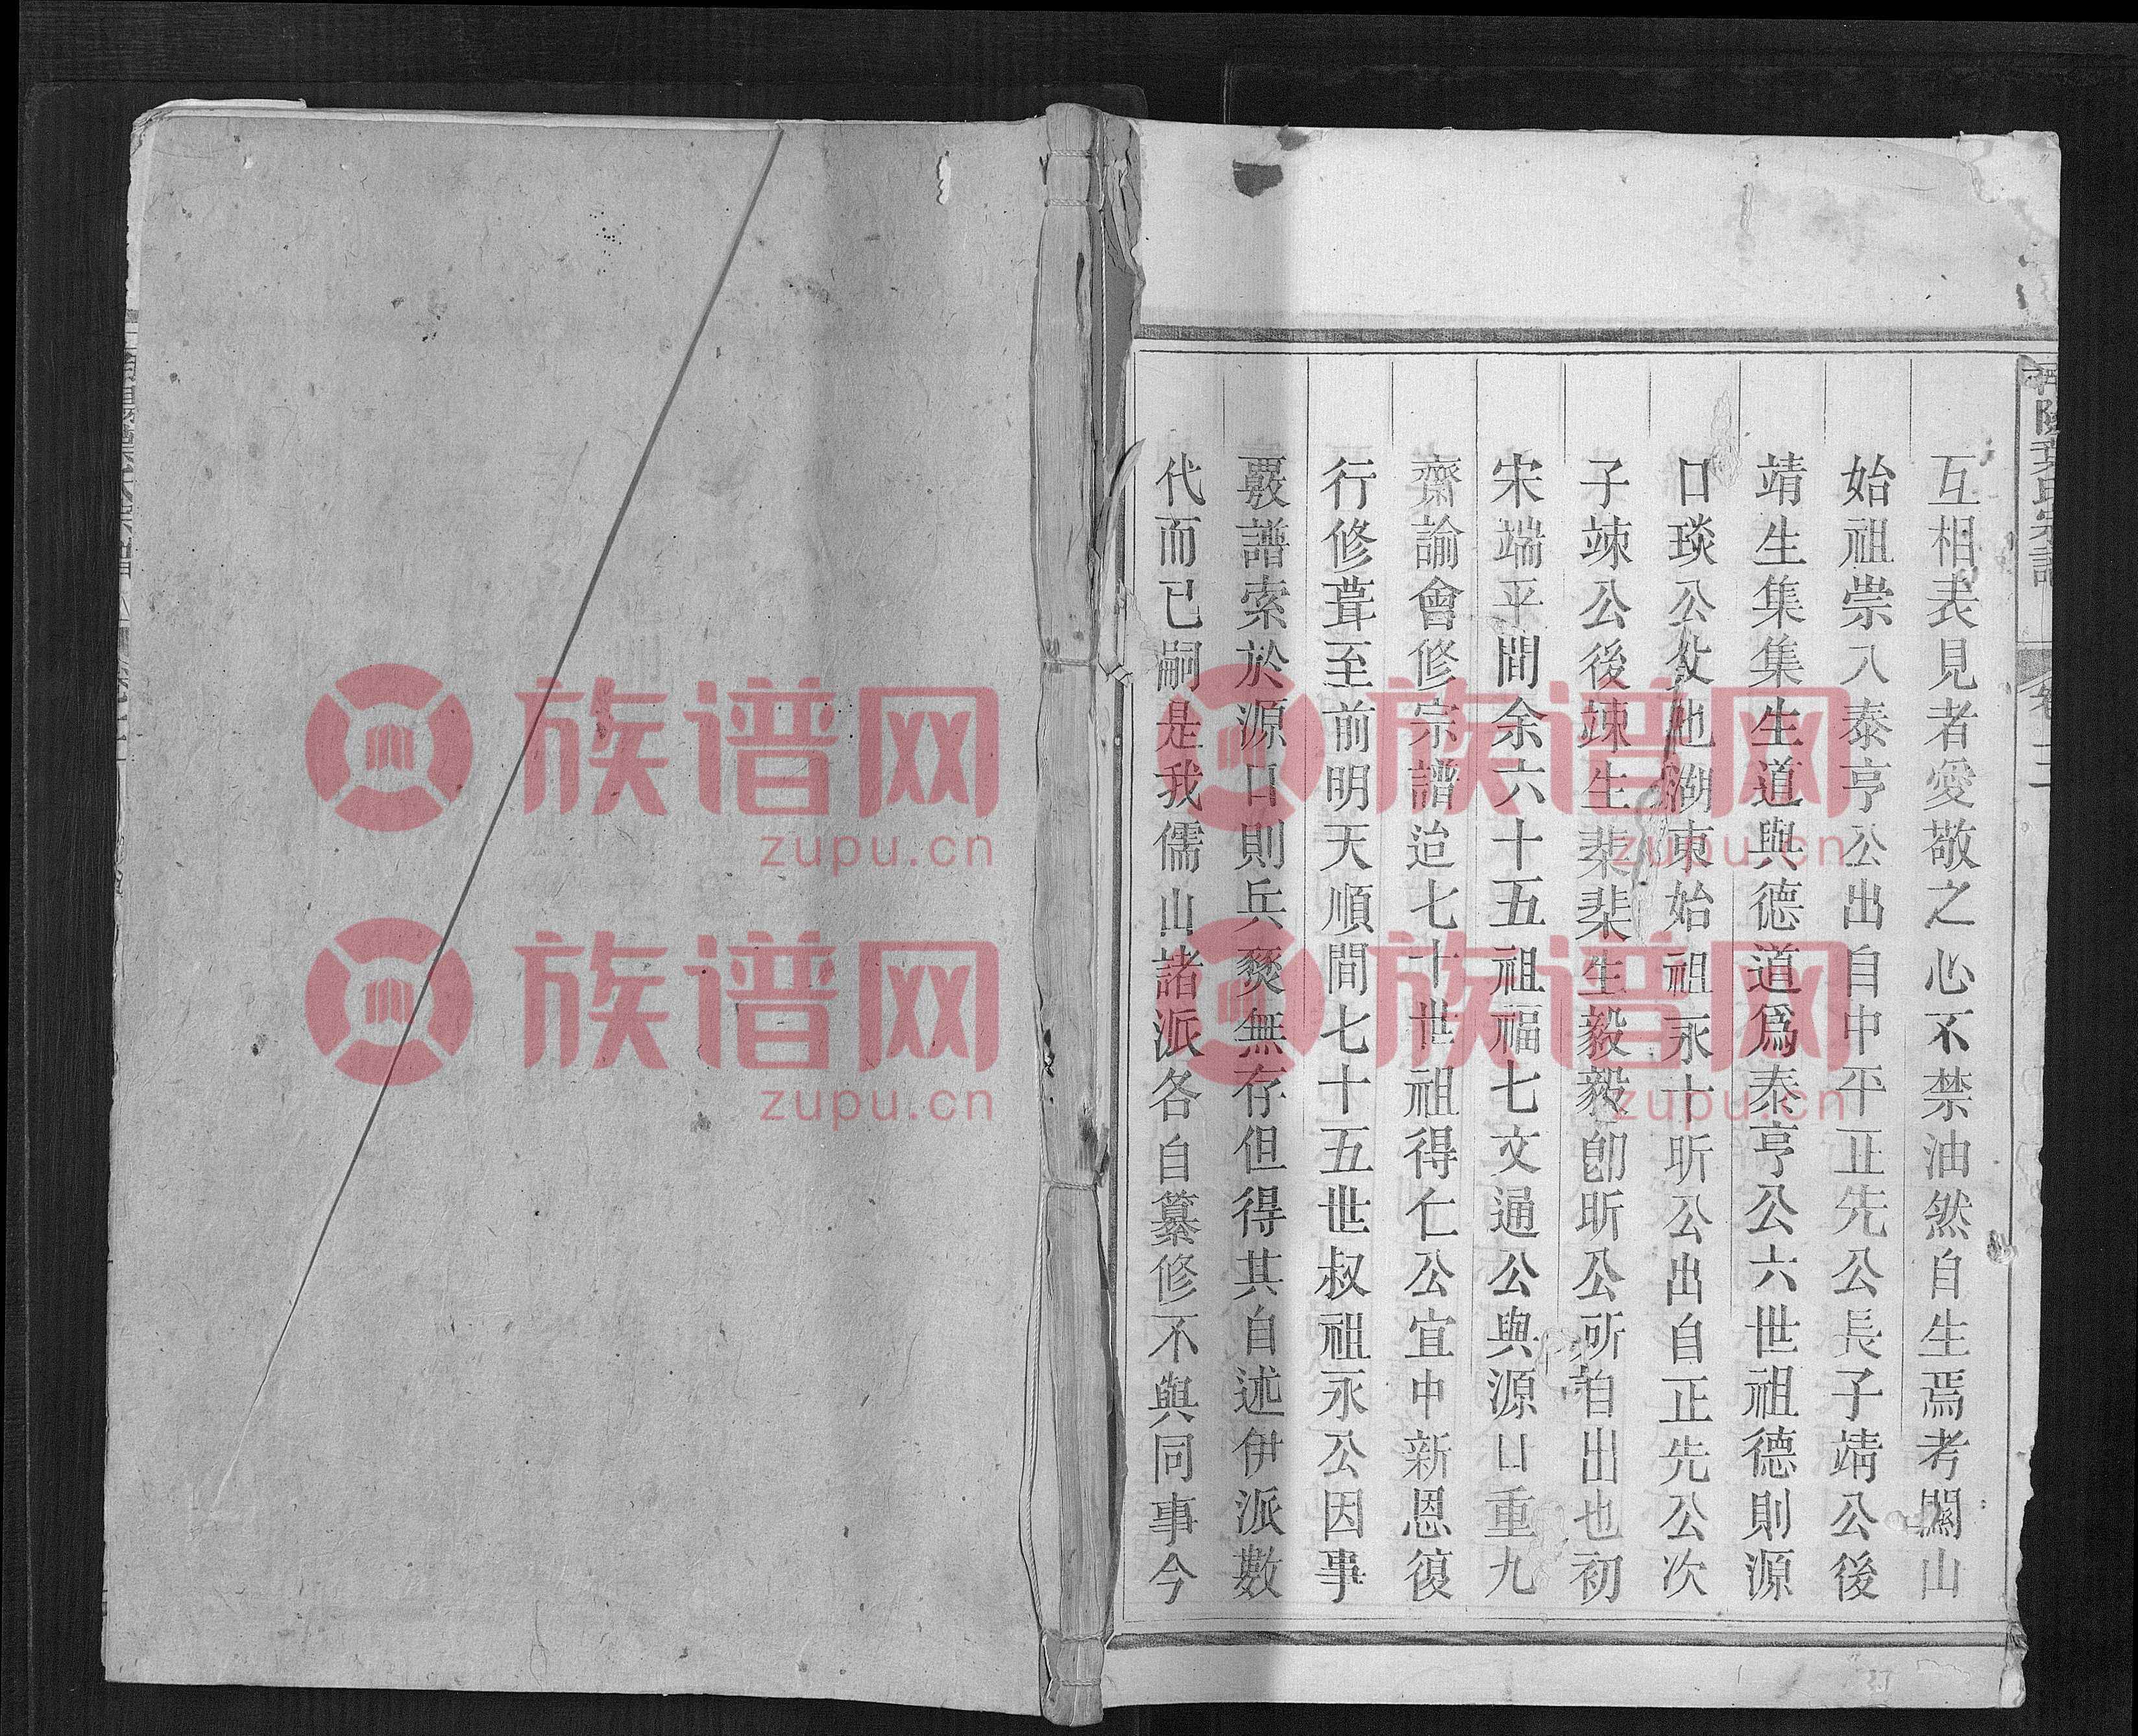 互相表見者愛敬之心不禁油然自生焉考闕山
始祖崇八泰亨公出自中平正先公長子靖公後
靖生集集生道與德道爲泰亨公六世祖德則源
口琰公父也湖東始祖永十昕公出自正先公次
子竦公後竦生棐棐生毅毅卽昕公所自出也初
宋端平間余六十五祖福七文通公與源口重九
齋諭會修宗譜迨七十世祖得仁公宜中新恩復
行修葺至前明天順間七十五世叔祖永公因事
覈譜索於源口則兵燹無存但得其自述伊派數
代而已嗣是我儒山諸派各自纂修不與同事今
族谱网
zupu.cn
族谱网
zupu.cn
族谱网
zupu.cn
族谱网
zupu.cn